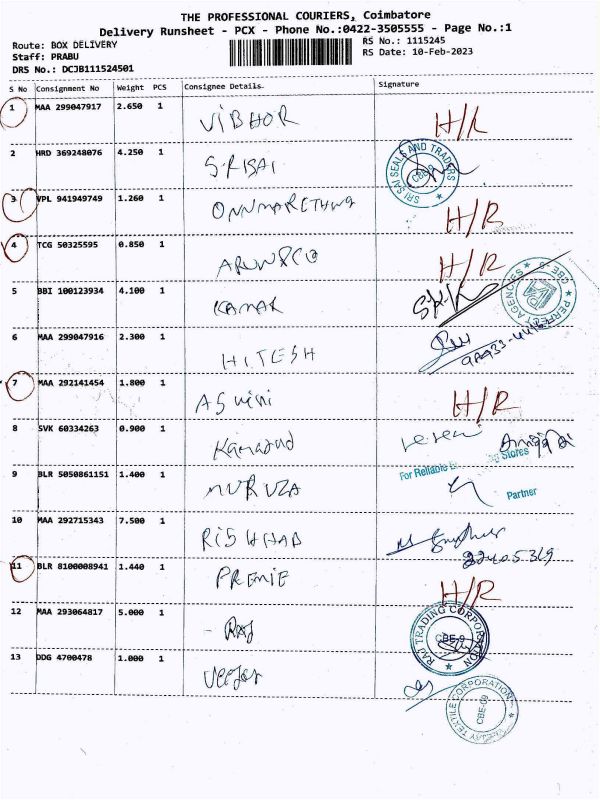 THE PROFESSIONAL COURIERS, Coimbatore
Delivery Runsheet - PCX - Phone No.:0422-3505555 - Page No.:1
Route: BOX DELIVERY
RS No.: 1115245
Staff: PRABU
RS Date: 10-Feb-2023
DRS No.: DCJB111524501
S No Consignment No Weight PCS Consignee Details. Signature
1 MAA 299047917 2.650 1 VIBHOR H/R
2 HRD 369248076 4.250 1 SRISAI
SRI SAI SEALS AND TRADERS
CBE-9
3 VPL 941949749 1.260 1 H/R
4 TCG 50325595 0.850 1 H/R
5 BBI 100123934 4.100 1 KAMAR
PERFECT AGENCIES CBE-9
6 MAA 299047916 2.300 1 HITESH
7 MAA 292141454 1.800 1 ASwini H/R
8 SVK 60334263 0.900 1
9 BLR 5050861151 1.400 1
For Reliable Stores
Partner
10 MAA 292715343 7.500 1 RISHHAB
11 BLR 8100008941 1.440 1 PREMIE H/R
12 MAA 293064817 5.000 1 - RAJ
RAJ TRADING CORPORATION
CBE-9
13 DDG 4700478 1.000 1
TEXTILE CORPORATION
CBE-09